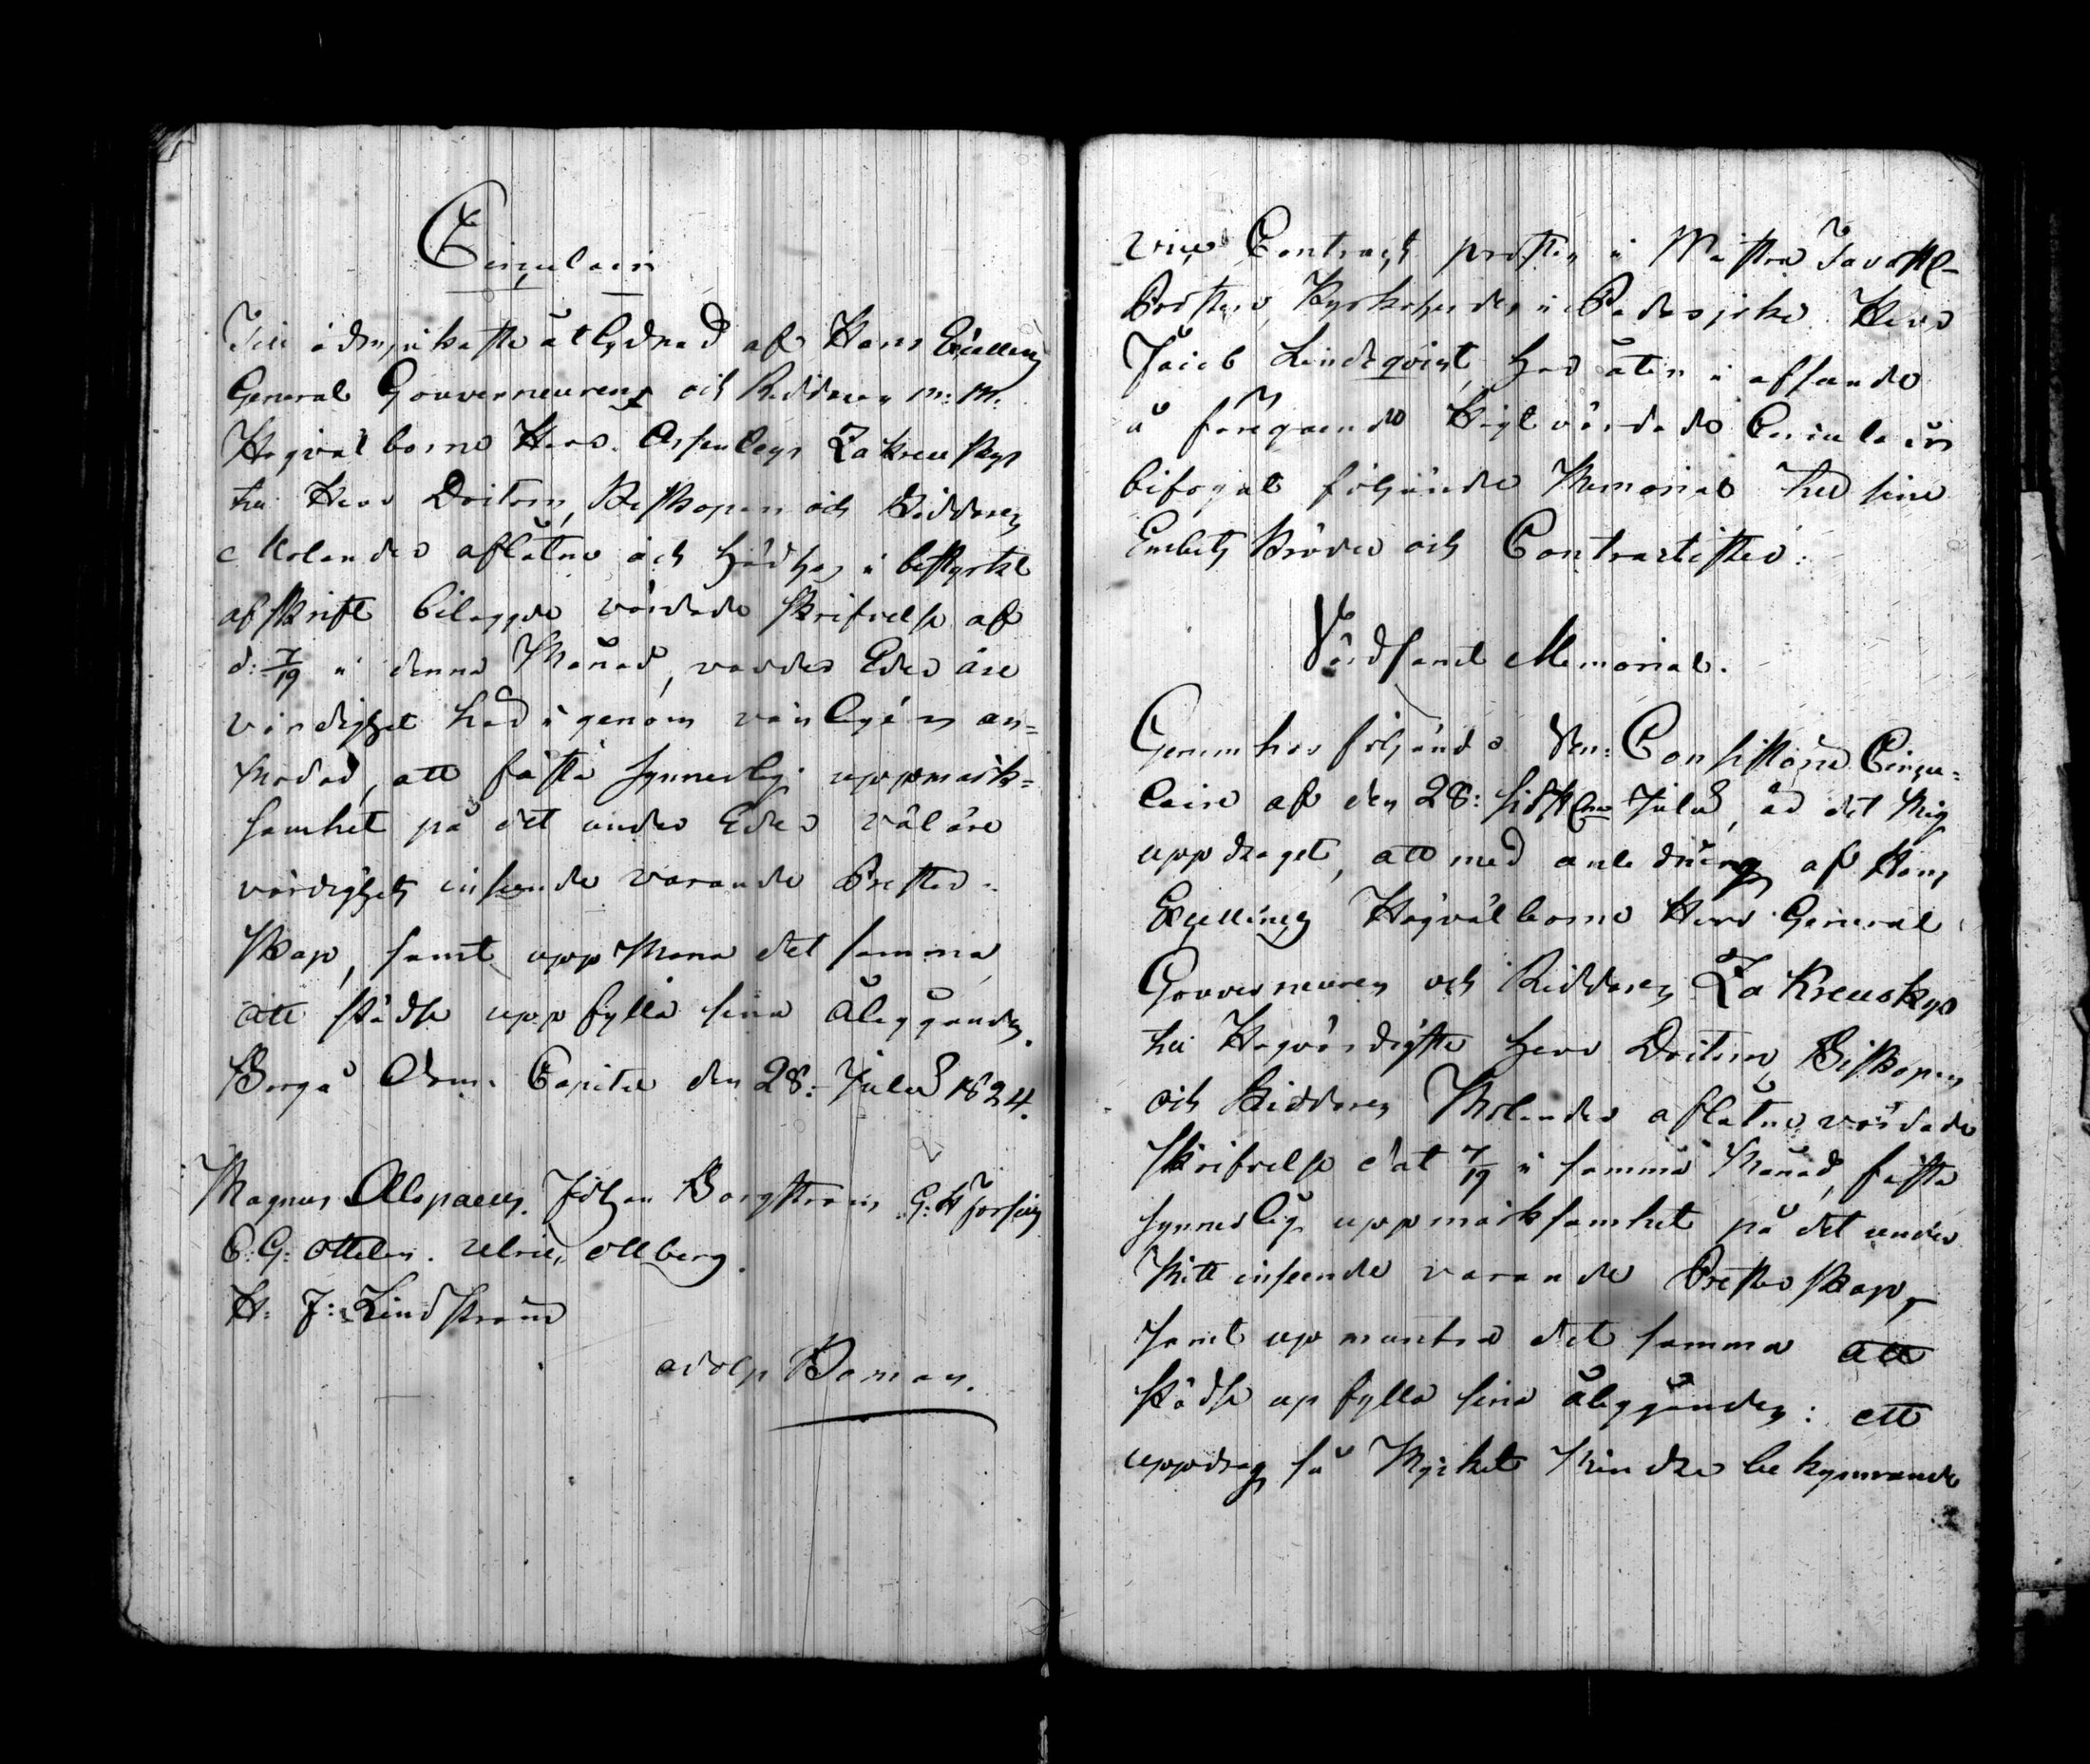 Circulair
Till ödmjukaste åtlydnad af Hans Excellens
General Gouverneurens och Riddaren m: m:
Högvälborne Herr Arseniegn Zakrewskys
till Herr Doctorn, Biskopen och Riddaren
Molander aflåtne och härhos i bestyrkt
afskrift bilagde vördade skrifvelse af
d: 7/19 i denna Månad, varder Eder äre
vördighet härigenom vänligen an=
modad, att fästa synnerlig uppmärk=
samhet på det under Eder väläre
vördighets inseende varande Prester=
skap, samt uppmana det samma
att städse uppfylla sina åligganden.
Borgå Dom. Capitel den 28: Julii 1824.
Magnus Alopaeus. Johan Borgström. G: H
C: G: Ottelin. Ulric Ahlberg.
H: J: Lindström
Adolp Boman.
vice Contracts prosten i Mästra Tavastl-
Prosten Kyrkoherden i Padasjoki Herr
Jacob Lindeqvist har åter i afseende
å föregaende Högtvördade Circulair
bifogat följande Memorial till sine
Embets Bröder och Contractister:
Vördsamt Memorial.
Genom hos följande Ven: Consistorii Circu=
laire af den 28: sistl. Julii, är det mig
uppdraget, att med anledning af Hans
Excellens Högvälborne Herr General
Gouverneuren och Riddaren Zakrewskys
till Högvördigste Herr Doctorn, Biskopen
och Riddaren Molander aflåtne vördade
skrifvelse dat 7/19 i samma Månad, fästa
synnerlig uppmärksamhet på det under
mitt inseende varande Presterskap,
samt upmuntra det samma att
städse upfylla sina åligganden: ett
uppdrag så mycket mindre bekymrande